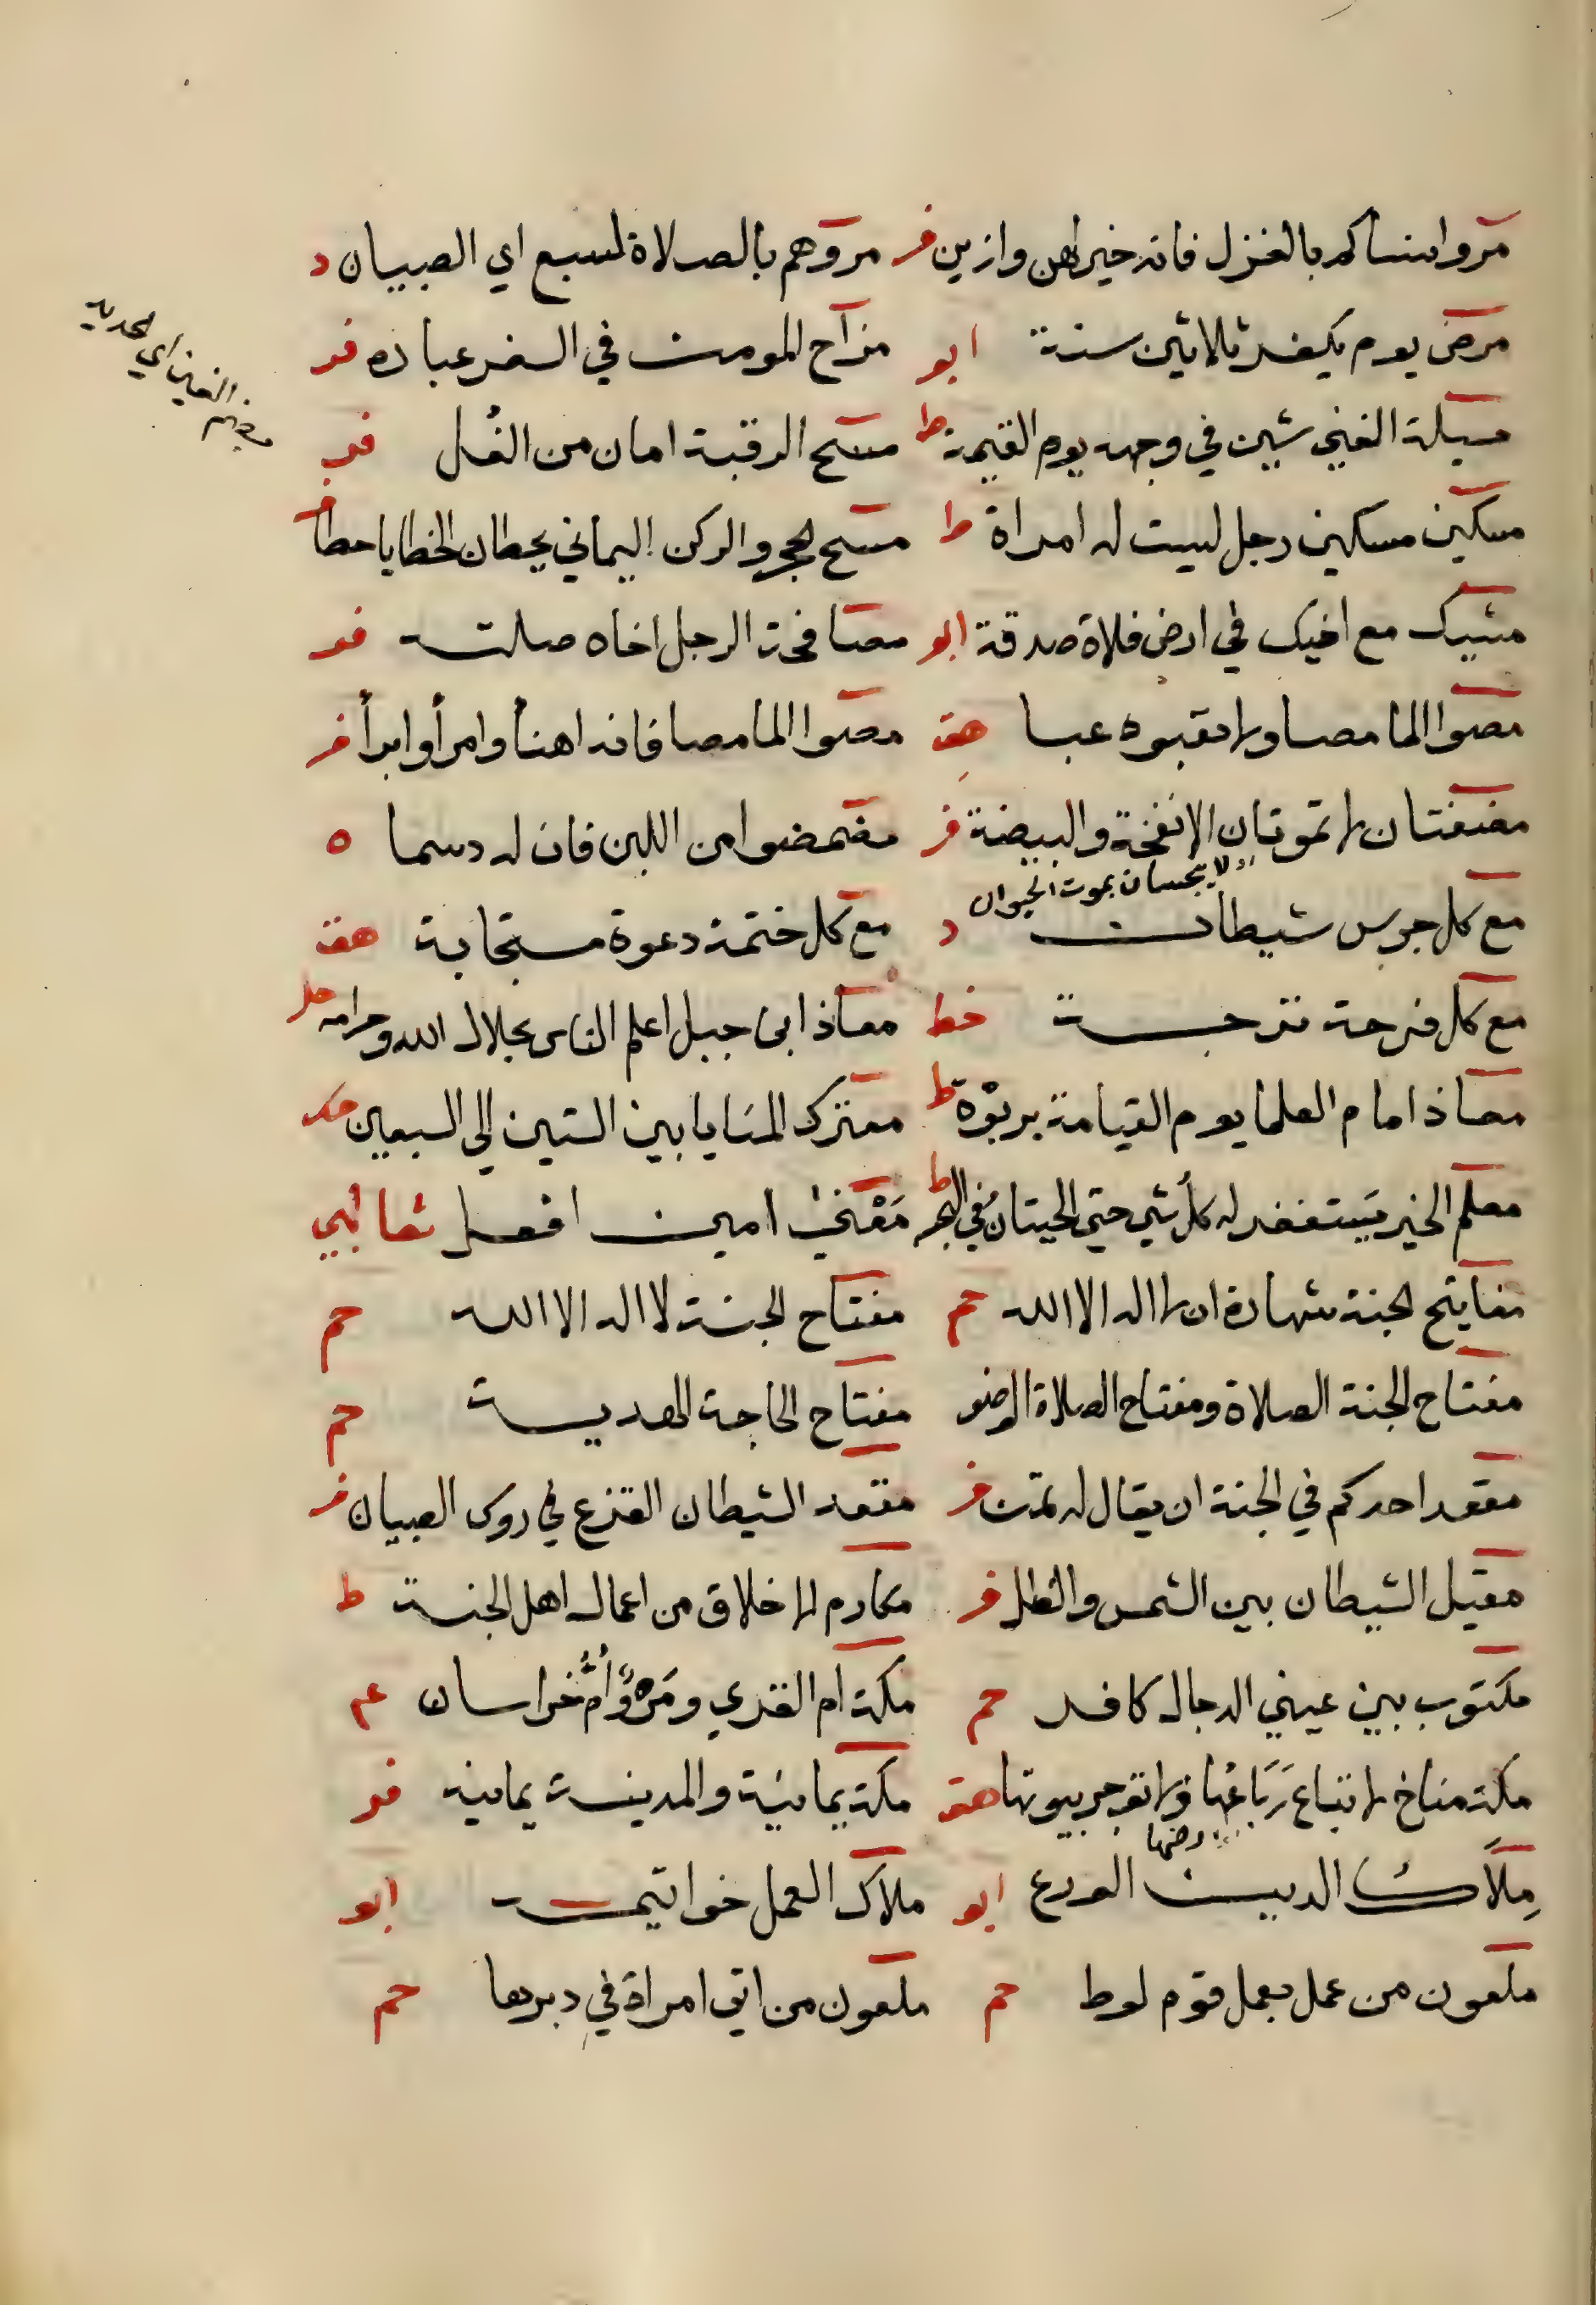 مروا نساكم بالغزل فانه خير لهن وازين فر مروهم بالصلاة لسبع اي الصبيان د
مرض يوم يكفر ثلاثين سنة ابو مزاح المومن في السفر عبادة فر
مسيلة الغني شين في وجهه يوم القيمة ط مسح الرقبة امان من الغل فر
بضم الغين اي الحديد
مسكين مسكين رجل ليست له امراة ط مسح الحجر والركن اليماني يحطان الخطايا حطا
مشيك مع اخيك في ارض فلاة صدقة ابو مصافحة الرجل اخاه صلت فر
مصوا الما مصا ولا تعبوه عبا هق مصوا الما مصا فانه اهنأ وامرأ وابرأ فر
مضغتان لا تموتان الانفخة والبيضة فر مضمضوا من اللبن فان له دسما ه
لا ينجسان بموت الحيوان
مع كل جرس شيطان د مع كل ختمة دعوة مستجابة هق
مع كل فرحة ترحة خط معاذ ابن جبل اعلم الناس بحلال الله وحرامه حل
معاذ امام العلما يوم القيامة بربوة ط معترك المنايا بين الستين الي السبعين حك
معلم الخير يستغفر له كل شي حتي الحيتان في البحر ط مَعْني امين افعل ثعالبي
مفاتيح الجنة شهادة ان لا اله الا الله حم مفتاح الجنة لا اله الا الله حم
مفتاح الجنة الصلاة ومفتاح الصلاة الوضو مفتاح الحاجة الهدية حم
مقعد احدكم في الجنة ان يقال له تمن فر مقعد الشيطان القزع في روس الصبيان فر
مقيل الشيطان بين الشمس والظل فر مكارم الاخلاق من اعمال اهل الجنة ط
مكتوب بين عيني الدجال كافر حم مكة ام القري ومَرْوٌ اُمُّ خراسان عم
مكة مناخ لا تباع رَبَاعُها ولا تؤجر بيوتها هق مكة يمانية والمدينة يمانية فر
ارضها
مِلَاك الدين الورع ابو ملاك العمل خواتيمه ابو
ملعون من عمل بعمل قوم لوط حم ملعون من اتي امراة في دبرها حم